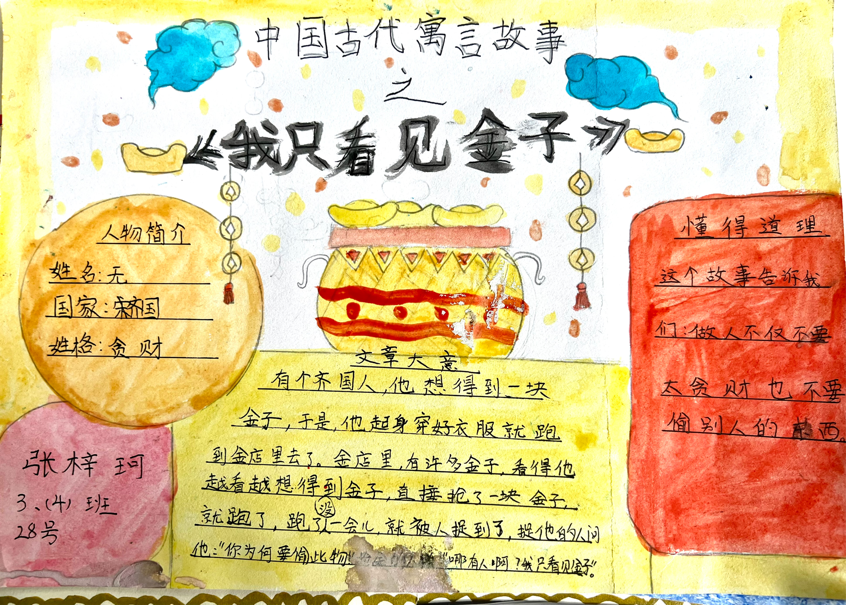 中国古代寓言故事
之
《我只看见金子》
人物简介
姓名:无
国家:齐国
姓格:贪财
懂得道理
这个故事告诉我
们:做人不仅不要
太贪财也不要
偷别人的东西。
文章大意
有个齐国人,他想得到一块
金子,于是,他起身穿好衣服就跑
到金店里去了。金店里,有许多金子,看得他
越看越想得到金子,直接抢了一块金子,
就跑了,跑了没一会儿,就被人捉到了,捉他的人问
他:“你为何要偷此物”“哪有人啊?我只看见金子”。
张梓珂
3、(4)班
28号